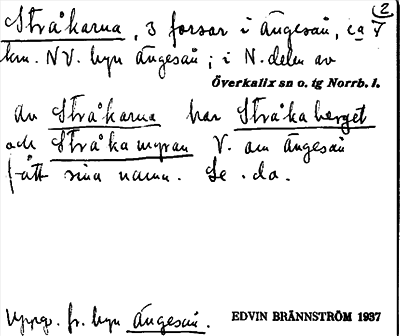 2
Stråkarna, 3 forsar i Ängesån, ca 7
km. NV. byn Ängesån; i N. delen av
Överkalix sn o. tg Norrb. l.
Av Stråkarna har Stråkaberget
och Stråkamyran V. om Ängesån
fått sina namn. Se. da.
Uppg. fr. byn Ängesån. EDVIN BRÄNNSTRÖM 1937